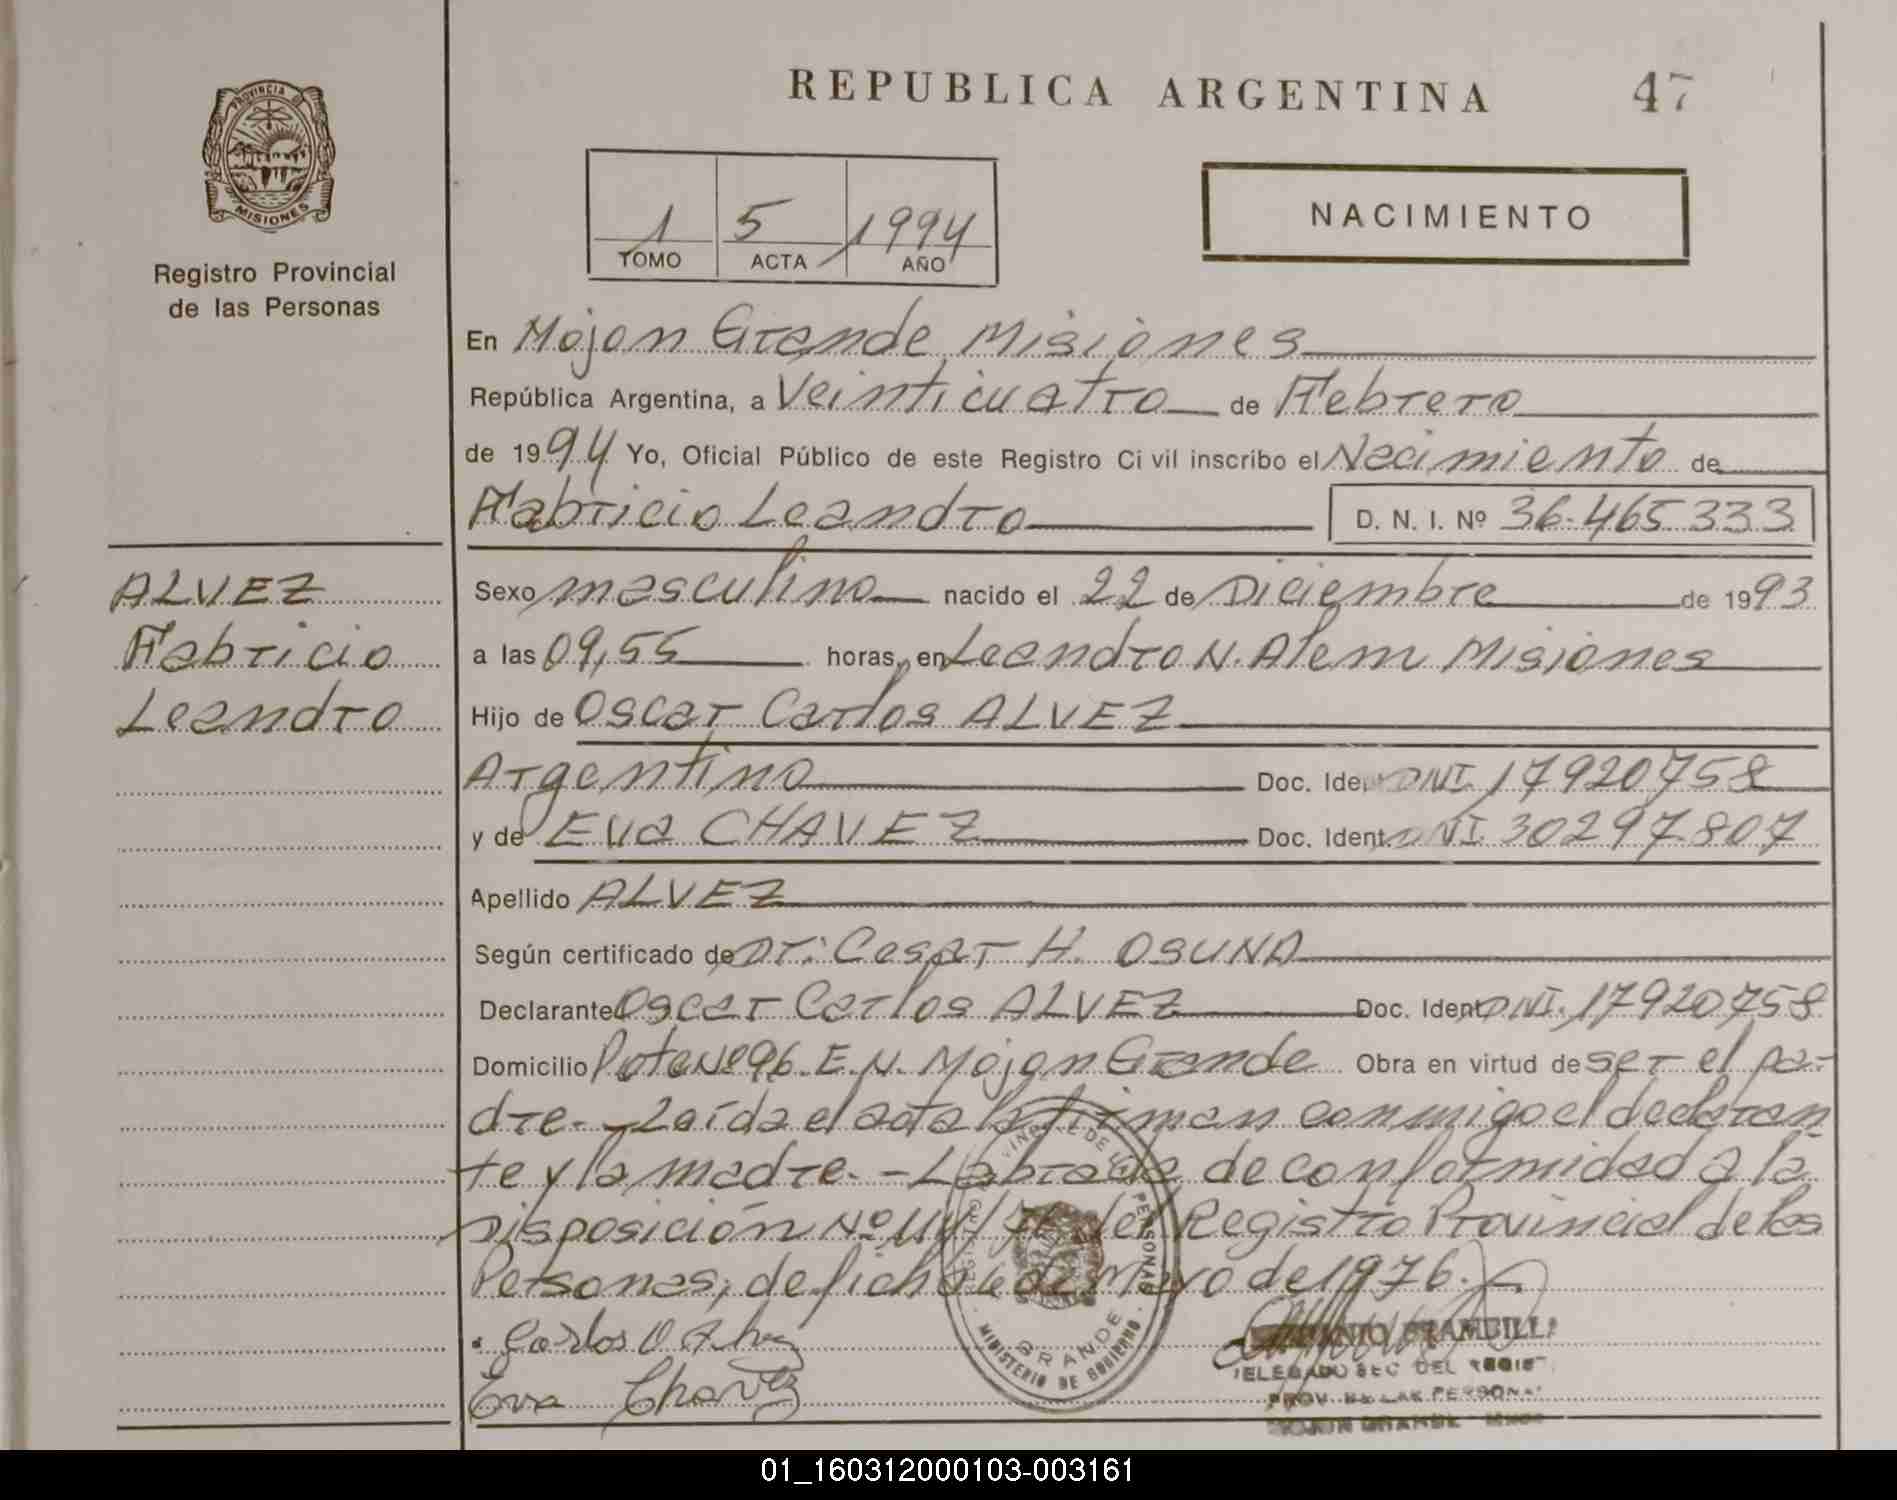 REPUBLICA ARGENTINA 47
PROVINCIA DE
MISIONES
Registro Provincial
de las Personas
1 5 1994
TOMO ACTA AÑO
NACIMIENTO
En Mojon Grande Misiones
República Argentina, a Veinticuatro de Febrero
de 1994 Yo, Oficial Público de este Registro Ci vil inscribo el Nacimiento de
Fabricio Leandro D. N. I. Nº 36.465.333
ALVEZ
Fabricio
Leandro
Sexo masculino nacido el 22 de Diciembre de 1993
a las 09,55 horas, en Leandro N. Alem Misiones
Hijo de Oscar Carlos ALVEZ
Argentino Doc. Ident. DNI. 17920758
y de Eva CHAVEZ Doc. Ident. DNI. 30297807
Apellido ALVEZ
Según certificado de Dr: Cesar H. OSUNA
Declarante Oscar Carlos ALVEZ Doc. Ident. DNI. 17920758
Domicilio Lote Nº 96. E.N. Mojon Grande Obra en virtud de ser el pa-
dre.- Leída el acta la firman conmigo el declaran
te y la madre.- Labrada de conformidad a la
Disposición Nº del Registro Provincial de las
Personas, de ficha de Mayo de 1976.
Carlos O Alvez
Eva Chavez
PERSONAS
GRANDE
MINISTERIO DE GOBIERNO
BRAMBILLA
DELEGADO SEC DEL REGIST
PROV. DE LAS PERSONAS
MOJON GRANDE
01_160312000103-003161